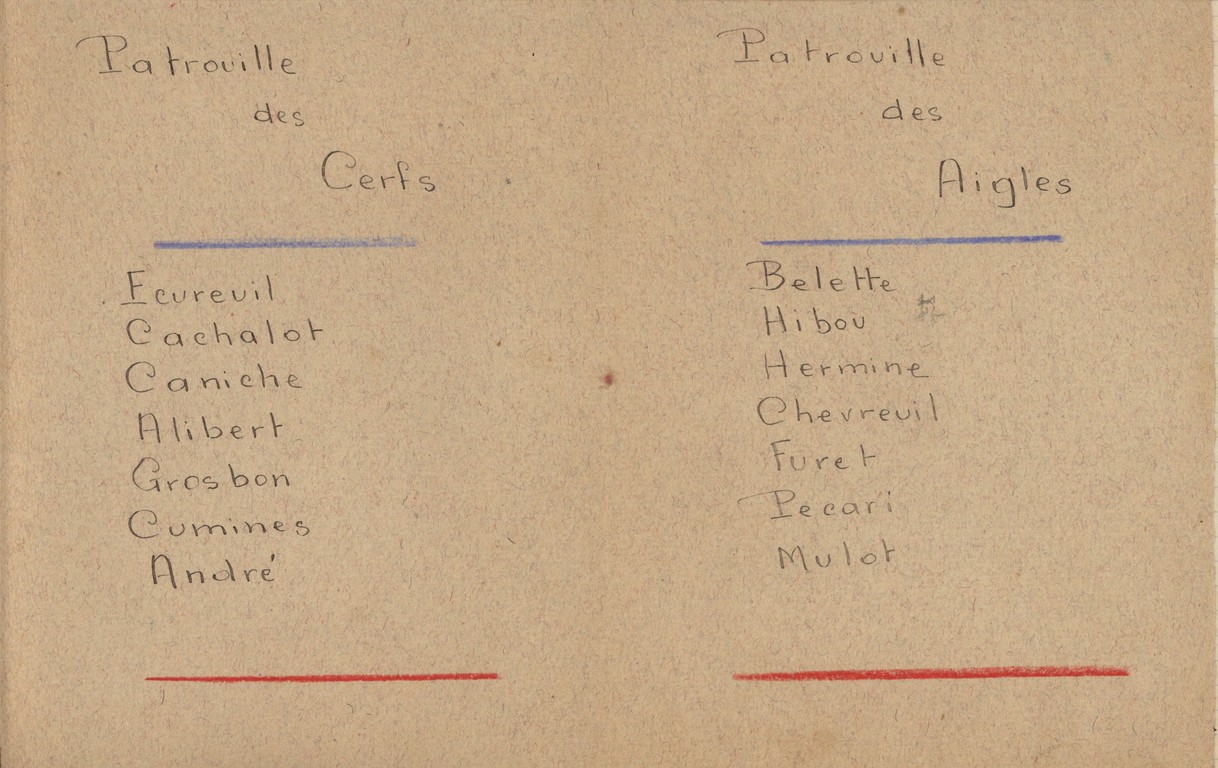 Patrouille
des
Cerfs
Ecureuil
Cachalot
Caniche
Alibert
Grosbon
Cumines
André
Patrouille
des
Aigles
Belette
Hibou
Hermine
Chevreuil
Furet
Pecari
Mulot